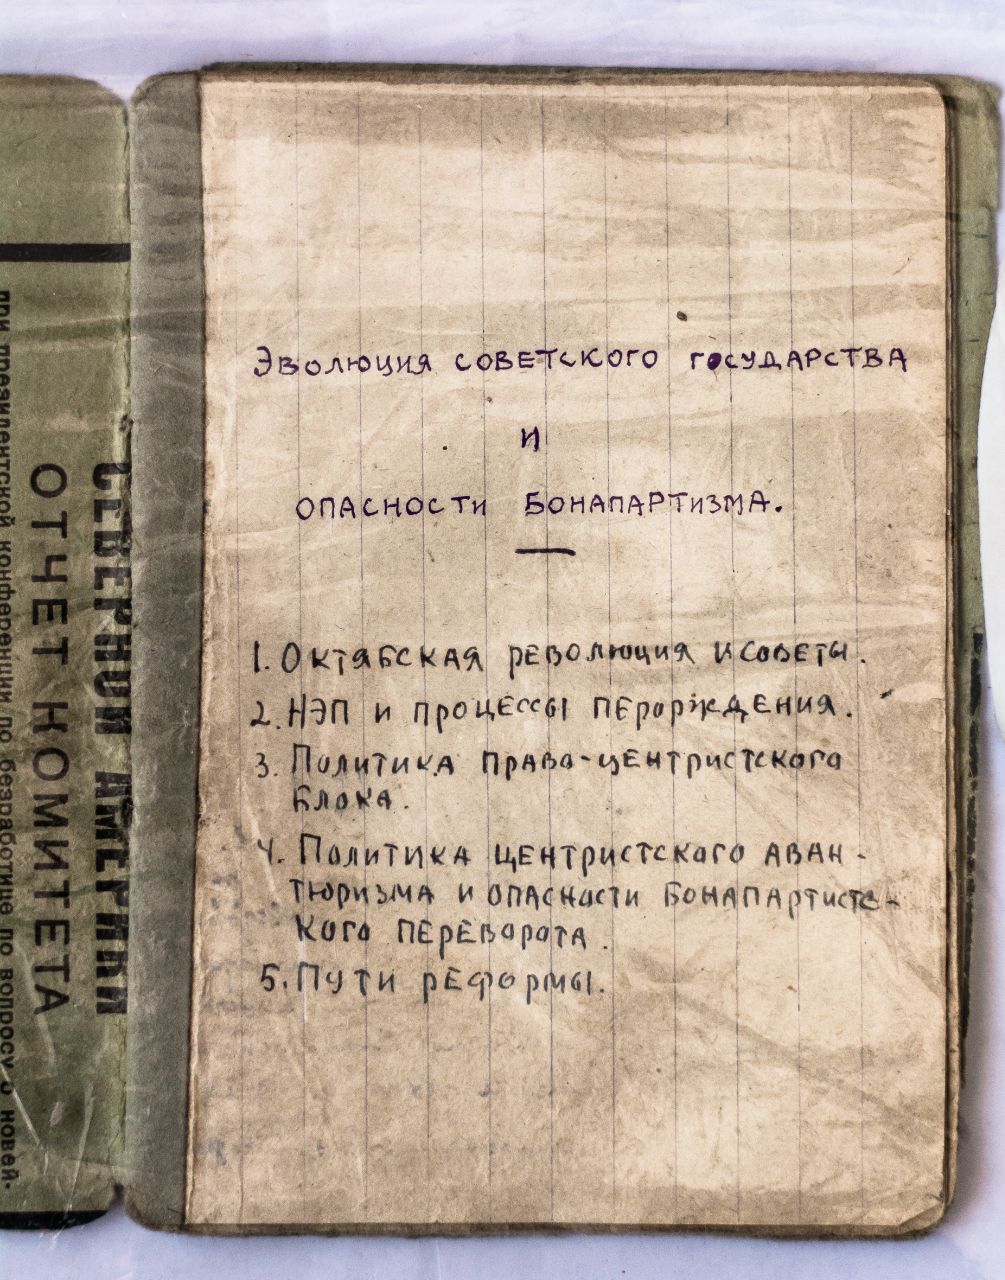 при президентской конференции по безработице по вопросу о новей-
ОТЧЕТ КОМИТЕТА
СЕВЕРНОЙ АМЕРИКИ
Эволюция советского государства
и
опасности Бонапартизма.
1. Октябская революция и советы.
2. НЭП и процессы перерждения.
3. Политика право-центристского
блока.
4. Политика центристского аван-
тюризма и опасности Бонапартистс-
кого переворота.
5. Пути реформы.